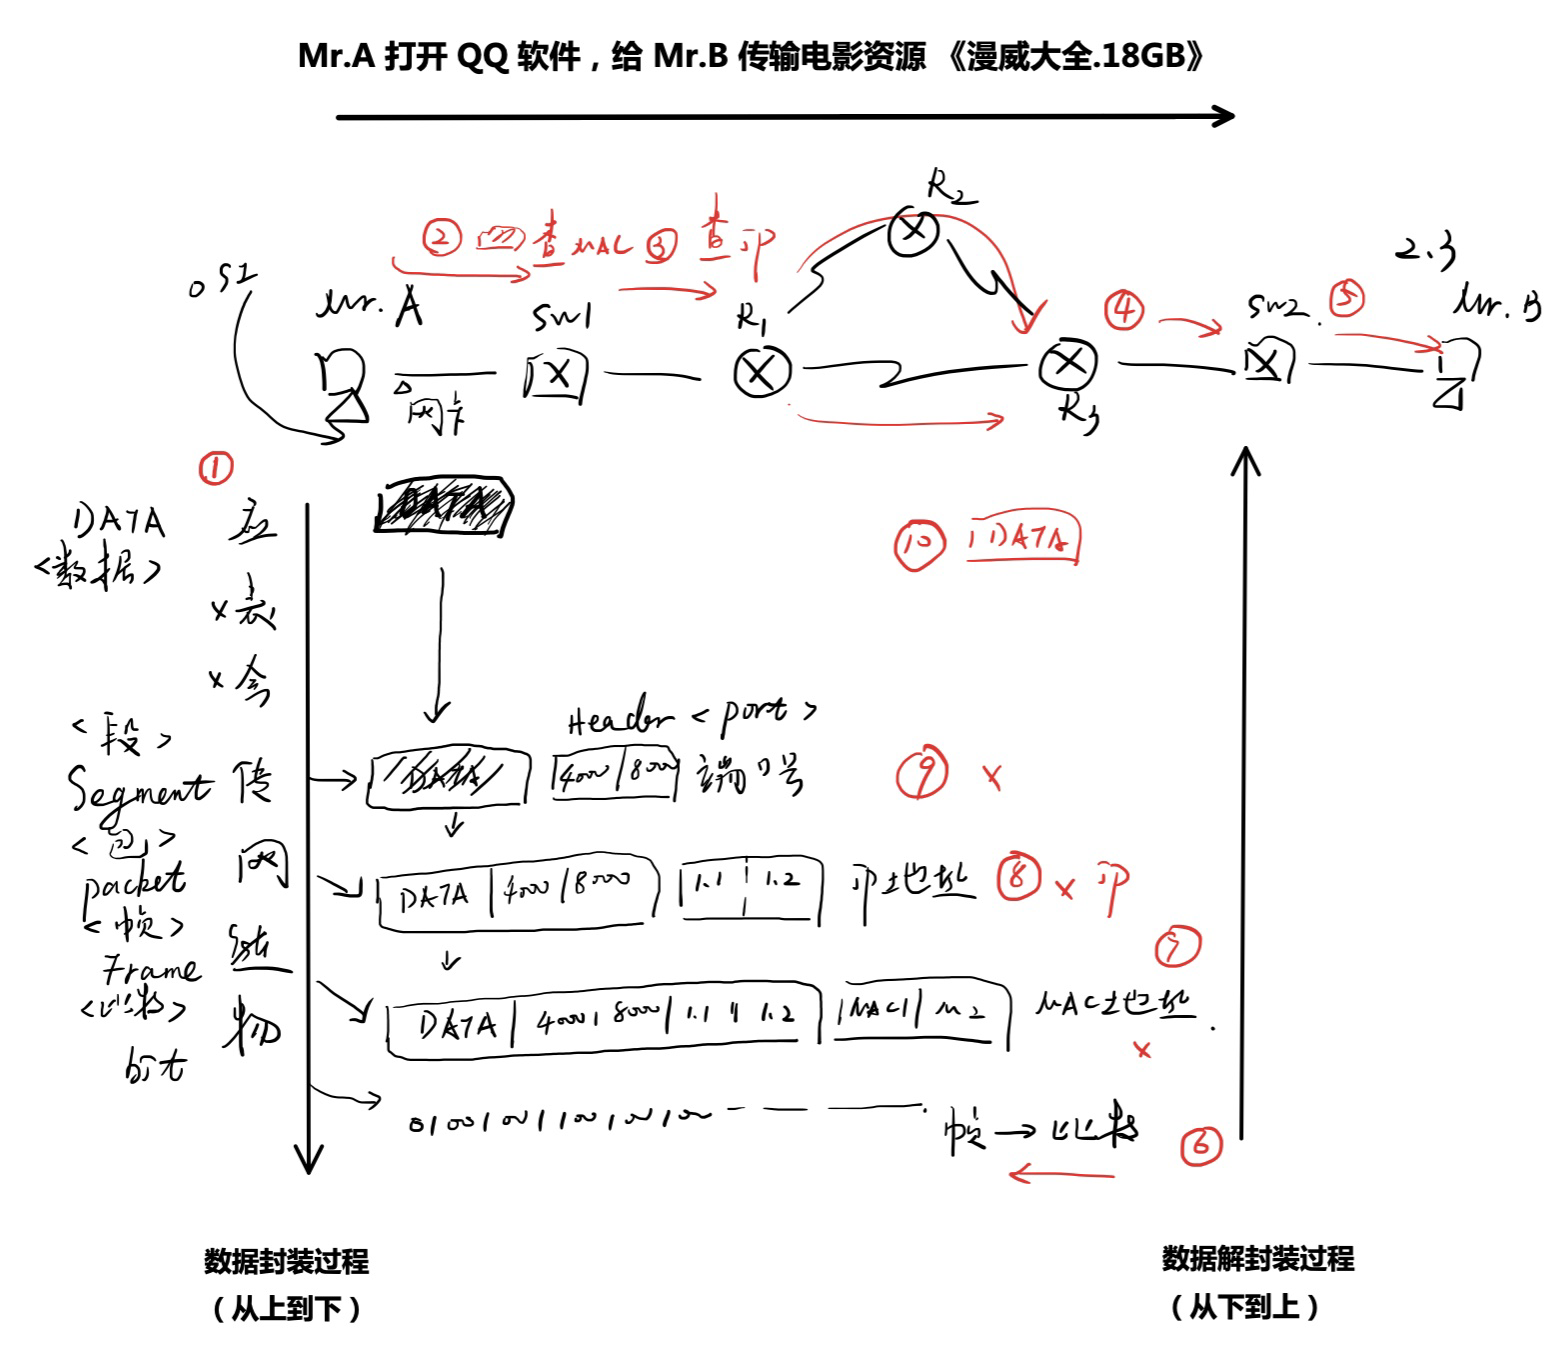 Mr.A 打开 QQ 软件，给 Mr.B 传输电影资源 《漫威大全.18GB》
R2
② 查 MAC ③ 查 IP
2.3
OSI
Mr. A
SW1
R1
④
SW2
⑤
Mr. B
网卡
R3
①
DATA
应
DATA
<数据>
⑩ DATA
x 表
x 会
<段>
Header <port>
Segment 传
DATA
4000 | 8000
端口号
⑨ x
<包>
packet
网
DATA | 4000 / 8000
1.1 | 1.2
IP地址
⑧ x IP
<帧>
Frame
⑦
DATA | 4000 | 8000 | 1.1 | 1.2
MAC1 | M2
MAC地址
x
<比特>
bit
物
帧 → 比特
⑥
数据封装过程
（从上到下）
数据解封装过程
（从下到上）